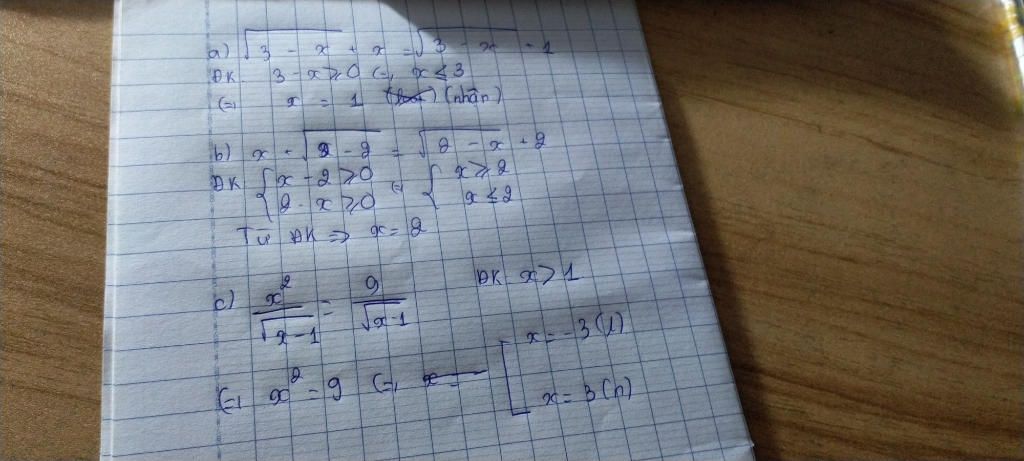 a) √(3 - x) + x = √(3 - x) + 1
ĐK 3 - x ⩾ 0 (=) x ⩽ 3
(=) x = 1 (nhận)
b) x - √(2 - 2) = √(2 - x) + 2
ĐK { x - 2 ⩾ 0 (=) { x ⩾ 2
2 - x ⩾ 0 x ⩽ 2
Từ ĐK => x = 2
c) x²/√(x-1) = 9/√(x-1) ĐK x > 1
(=) x² = 9 (=) [ x = -3 (l)
x = 3 (n)